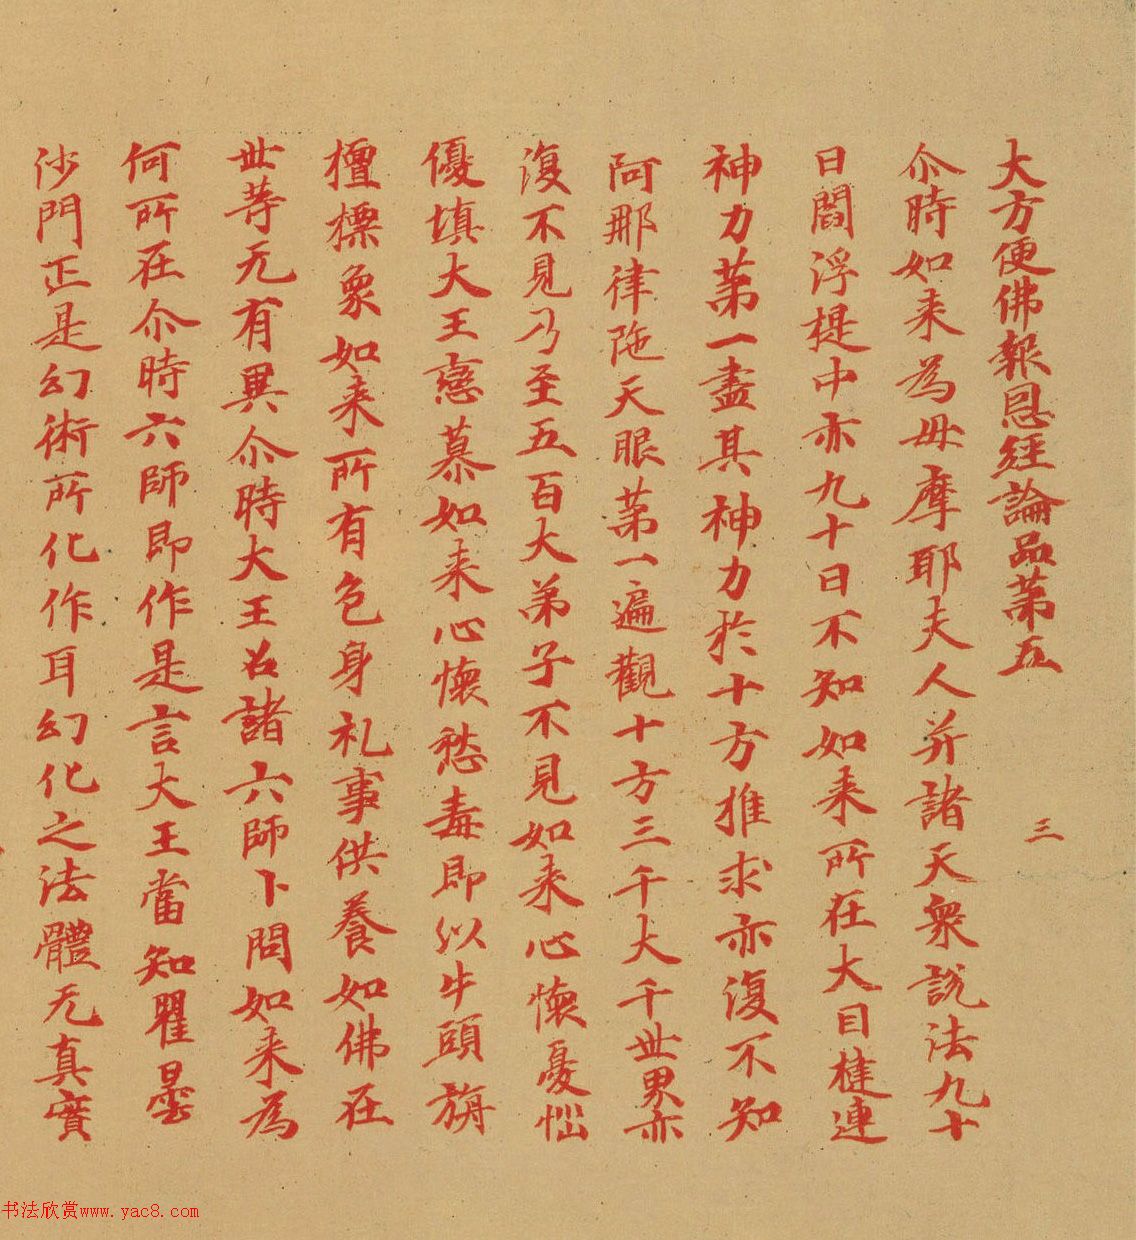 大方便佛報恩經論品第五
三
尒時如来為母摩耶夫人并諸天衆說法九十
日閻浮提中亦九十日不知如来所在大目揵連
神力第一盡其神力於十方推求亦復不知
阿那律陁天眼第一遍觀十方三千大千世界亦
復不見乃至五百大弟子不見如来心懷憂惱
優填大王戀慕如来心懷愁毒即以牛頭旃
檀摽象如来所有色身礼事供養如佛在
世等无有異尒時大王召諸六師卜問如来為
何所在尒時六師即作是言大王當知瞿曇
沙門正是幻術所化作耳幻化之法體无真實
书法欣赏www.yac8.com